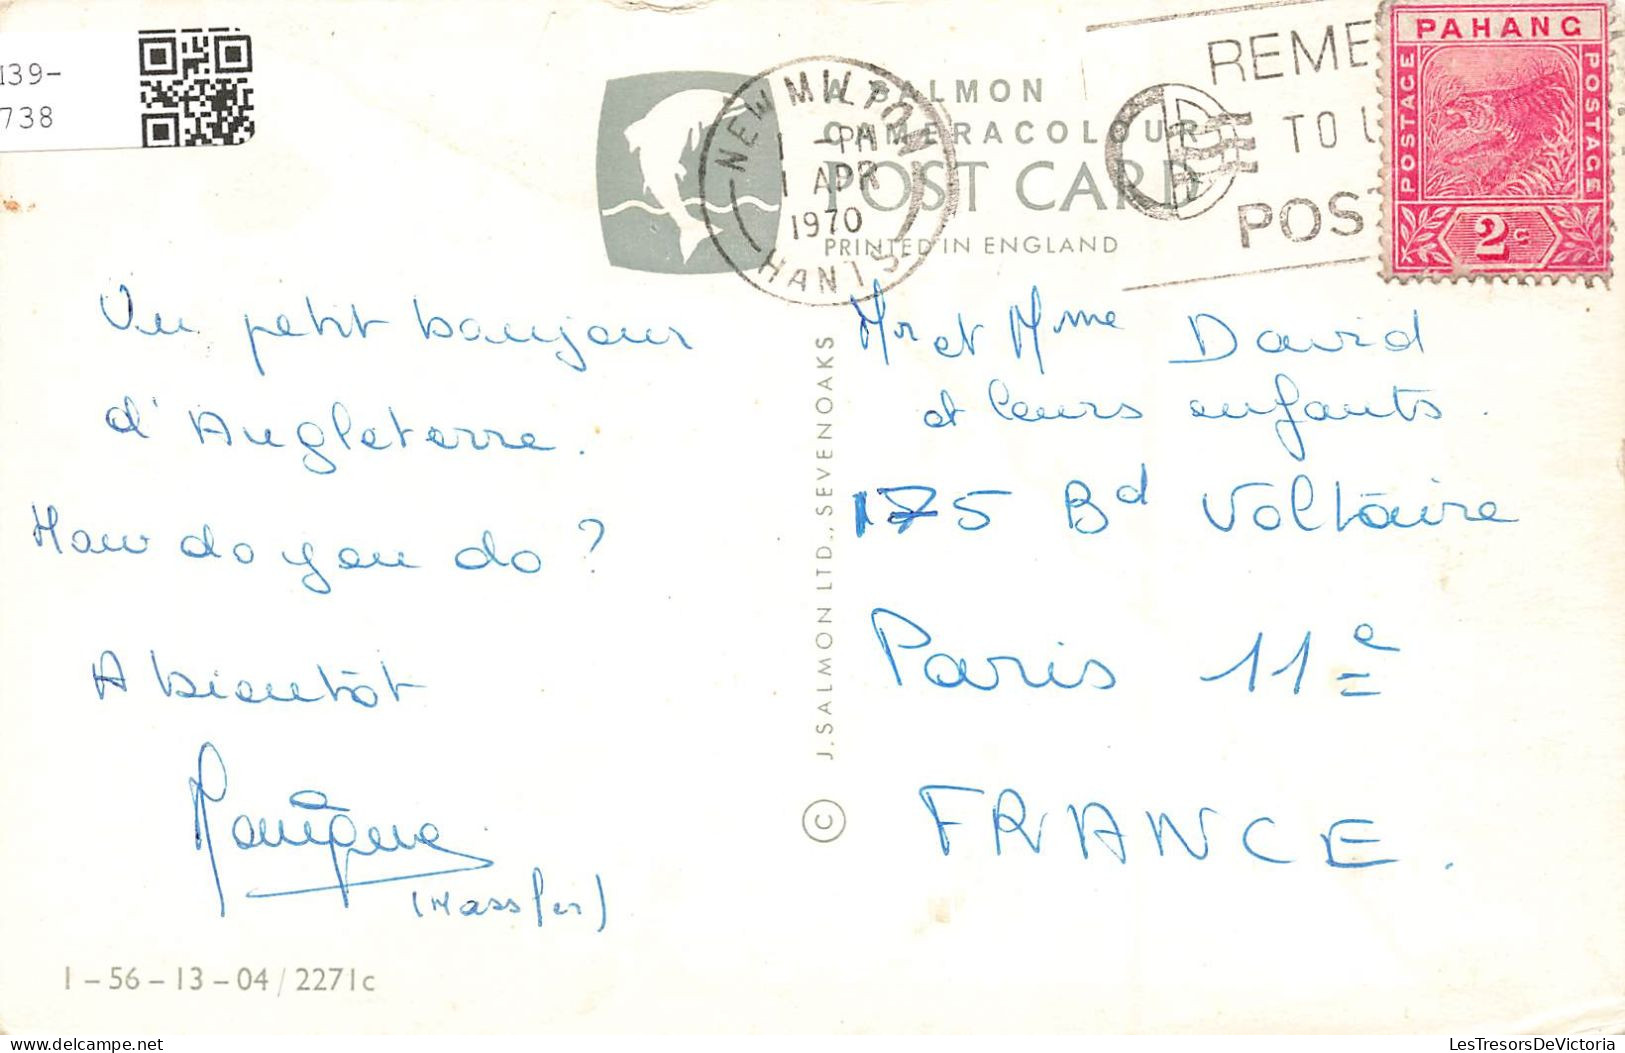 139-
738
A SALMON
CAMERACOLOUR
POST CARD
PRINTED IN ENGLAND
NEW MILTON
1 -PM
1 APR
1970
HANTS
REME
TO U
POST
PAHANG
POSTAGE
POSTAGE
2c
Un petit bonjour
d'Angleterre.
How do you do ?
A bientôt
(Massfer)
J. SALMON LTD., SEVENOAKS ©
Mr et Mme David
et leurs enfants.
175 Bd Voltaire
Paris 11e
FRANCE.
1-56-13-04/2271c
www.delcampe.net
LesTresorsDeVictoria